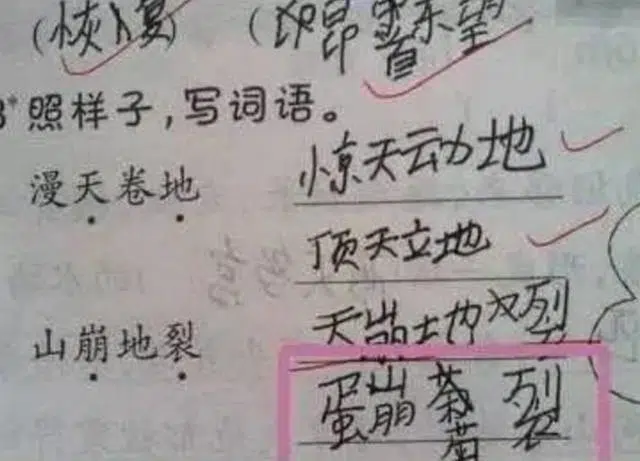 (恢复) (昂首东望
3*照样子,写词语。
漫天卷地 惊天动地
顶天立地
山崩地裂 天崩地裂
蛋崩菊裂